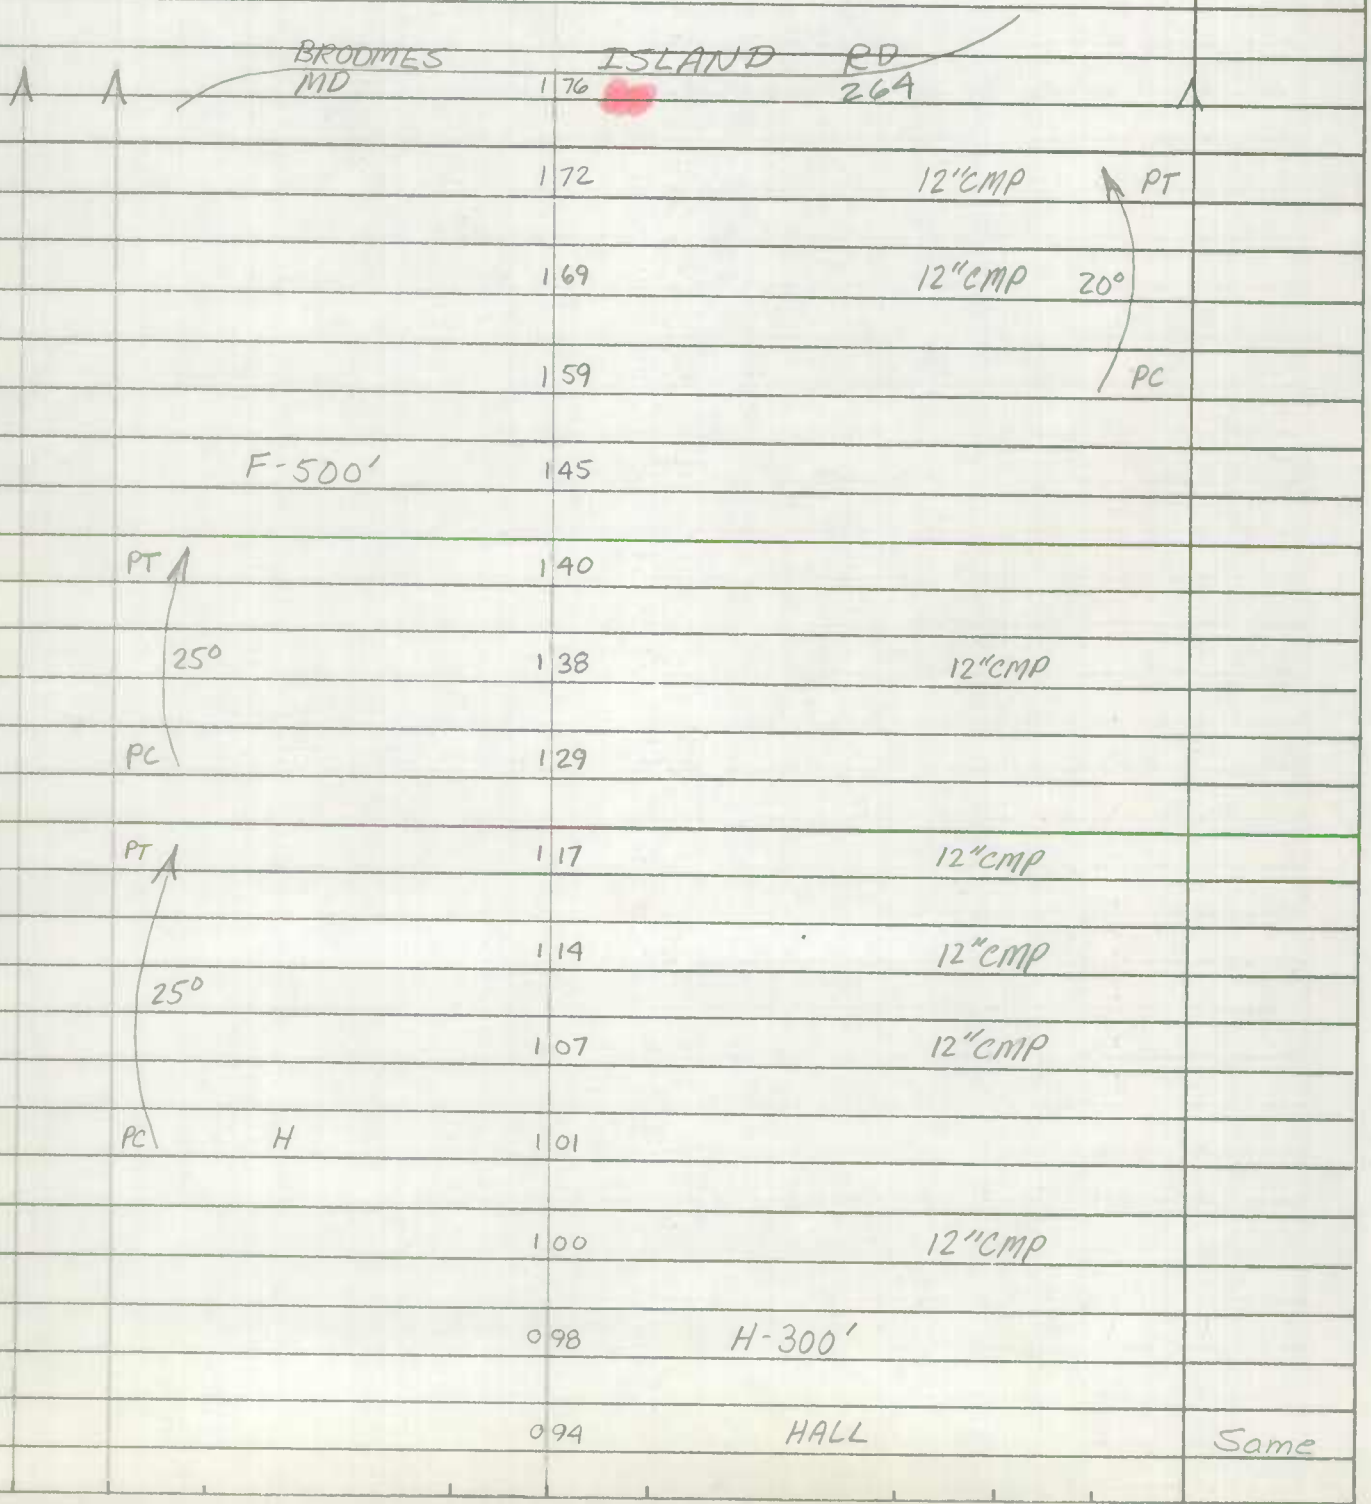 BRODMES ISLAND RD
MD 1 76 264
1 72 12"CMP PT
1 69 12"CMP 20°
1 59 PC
F-500' 1 45
PT 1 40
25° 1 38 12"CMP
PC 1 29
PT 1 17 12"CMP
1 14 12"CMP
25°
1 07 12"CMP
PC H 1 01
1 00 12"CMP
0 98 H-300'
0 94 HALL Same